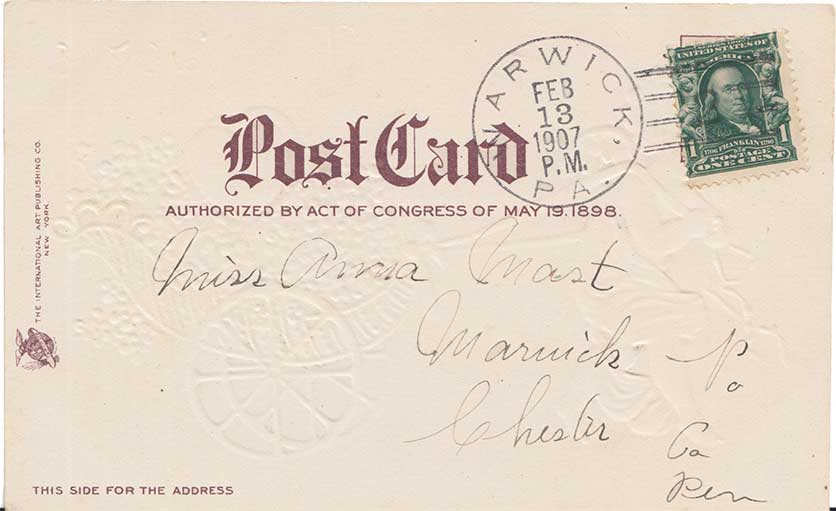 WARWICK, PA.
FEB
13
1907
P.M.
SERIES 1902
UNITED STATES OF
AMERICA
1706 FRANKLIN 1790
1 POSTAGE 1
ONE CENT
Post Card
AUTHORIZED BY ACT OF CONGRESS OF MAY 19. 1898.
THE INTERNATIONAL ART PUBLISHING CO.
NEW YORK.
Miss Anna Mast
Warwick Po
Chester Co
Pen
THIS SIDE FOR THE ADDRESS